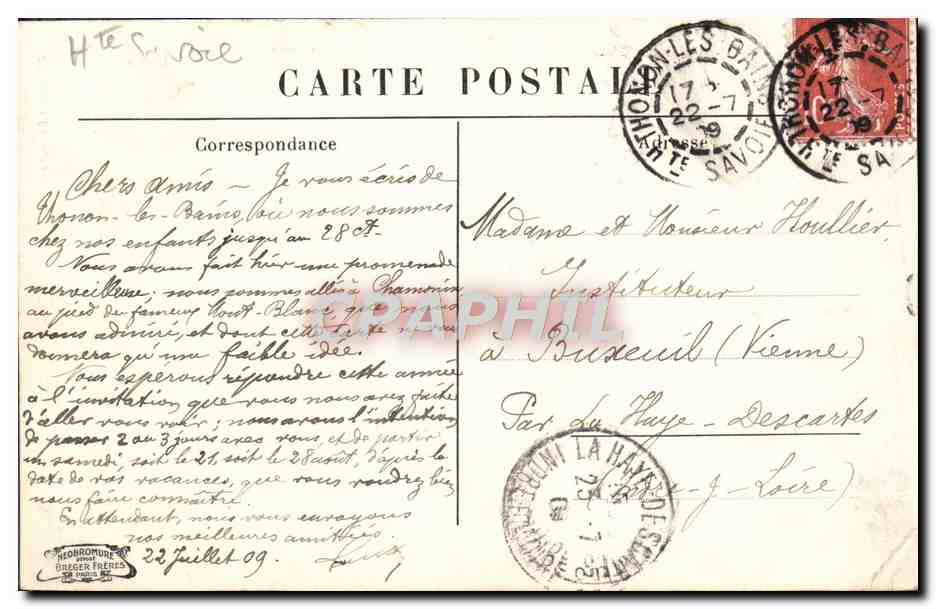 Hte Savoie
CARTE POSTALE
THONON-LES-BAINS
17
22-7
09
HTE SAVOIE
THONON-LES-BAINS
17
22-7
09
HTE SAVOIE
POSTES
Correspondance
Adresse
Chers amis - Je vous écris de
Thonon-les-Bains, où nous sommes
chez nos enfants jusqu'au 28 ct.
Nous avons fait hier une promenade
merveilleuse; nous sommes allés à Chamonix
au pied du fameux Mont-Blanc que nous
avons admiré, et dont cette carte ne vous
donnera qu'une faible idée.
Nous esperons répondre cette année
à l'invitation que vous nous avez faite
d'aller vous voir; nous avons l'intention
de passer 2 ou 3 jours avec vous, et de partir
un samedi, soit le 21, soit le 28 août, d'après la
date de vos vacances, que vous voudrez bien
nous faire connaître.
En attendant, nous vous envoyons
nos meilleures amitiés.
22 Juillet 09.
Madame et Monsieur Houllier,
Instituteur
à Buxeuil (Vienne)
Par La Haye-Descartes
(Indre-&-Loire)
LA HAYE-DESCARTES
23-7
09
CRAPHIL
NEOBROMURE
BREGER FRÈRES
PARIS